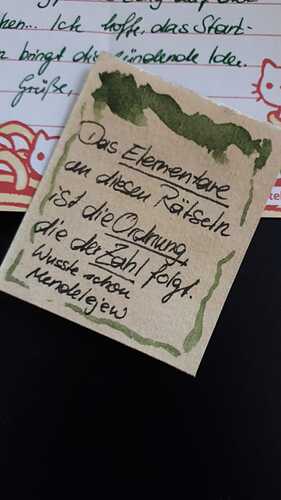 hen... Ich hoffe, das Start-
n bringt die zündende Idee.
Grüße,
Das Elementare
an diesen Rätseln
ist die Ordnung,
die der Zahl folgt.
Wusste schon
Mendelejew